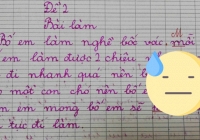 Đề 2
Bài làm
Bố em làm nghề bốc vác, mỗi
em làm được 2 chiều
đi nhanh quá nên b
một con chó nên bố
em mong bố em sẽ
tục đi làm.